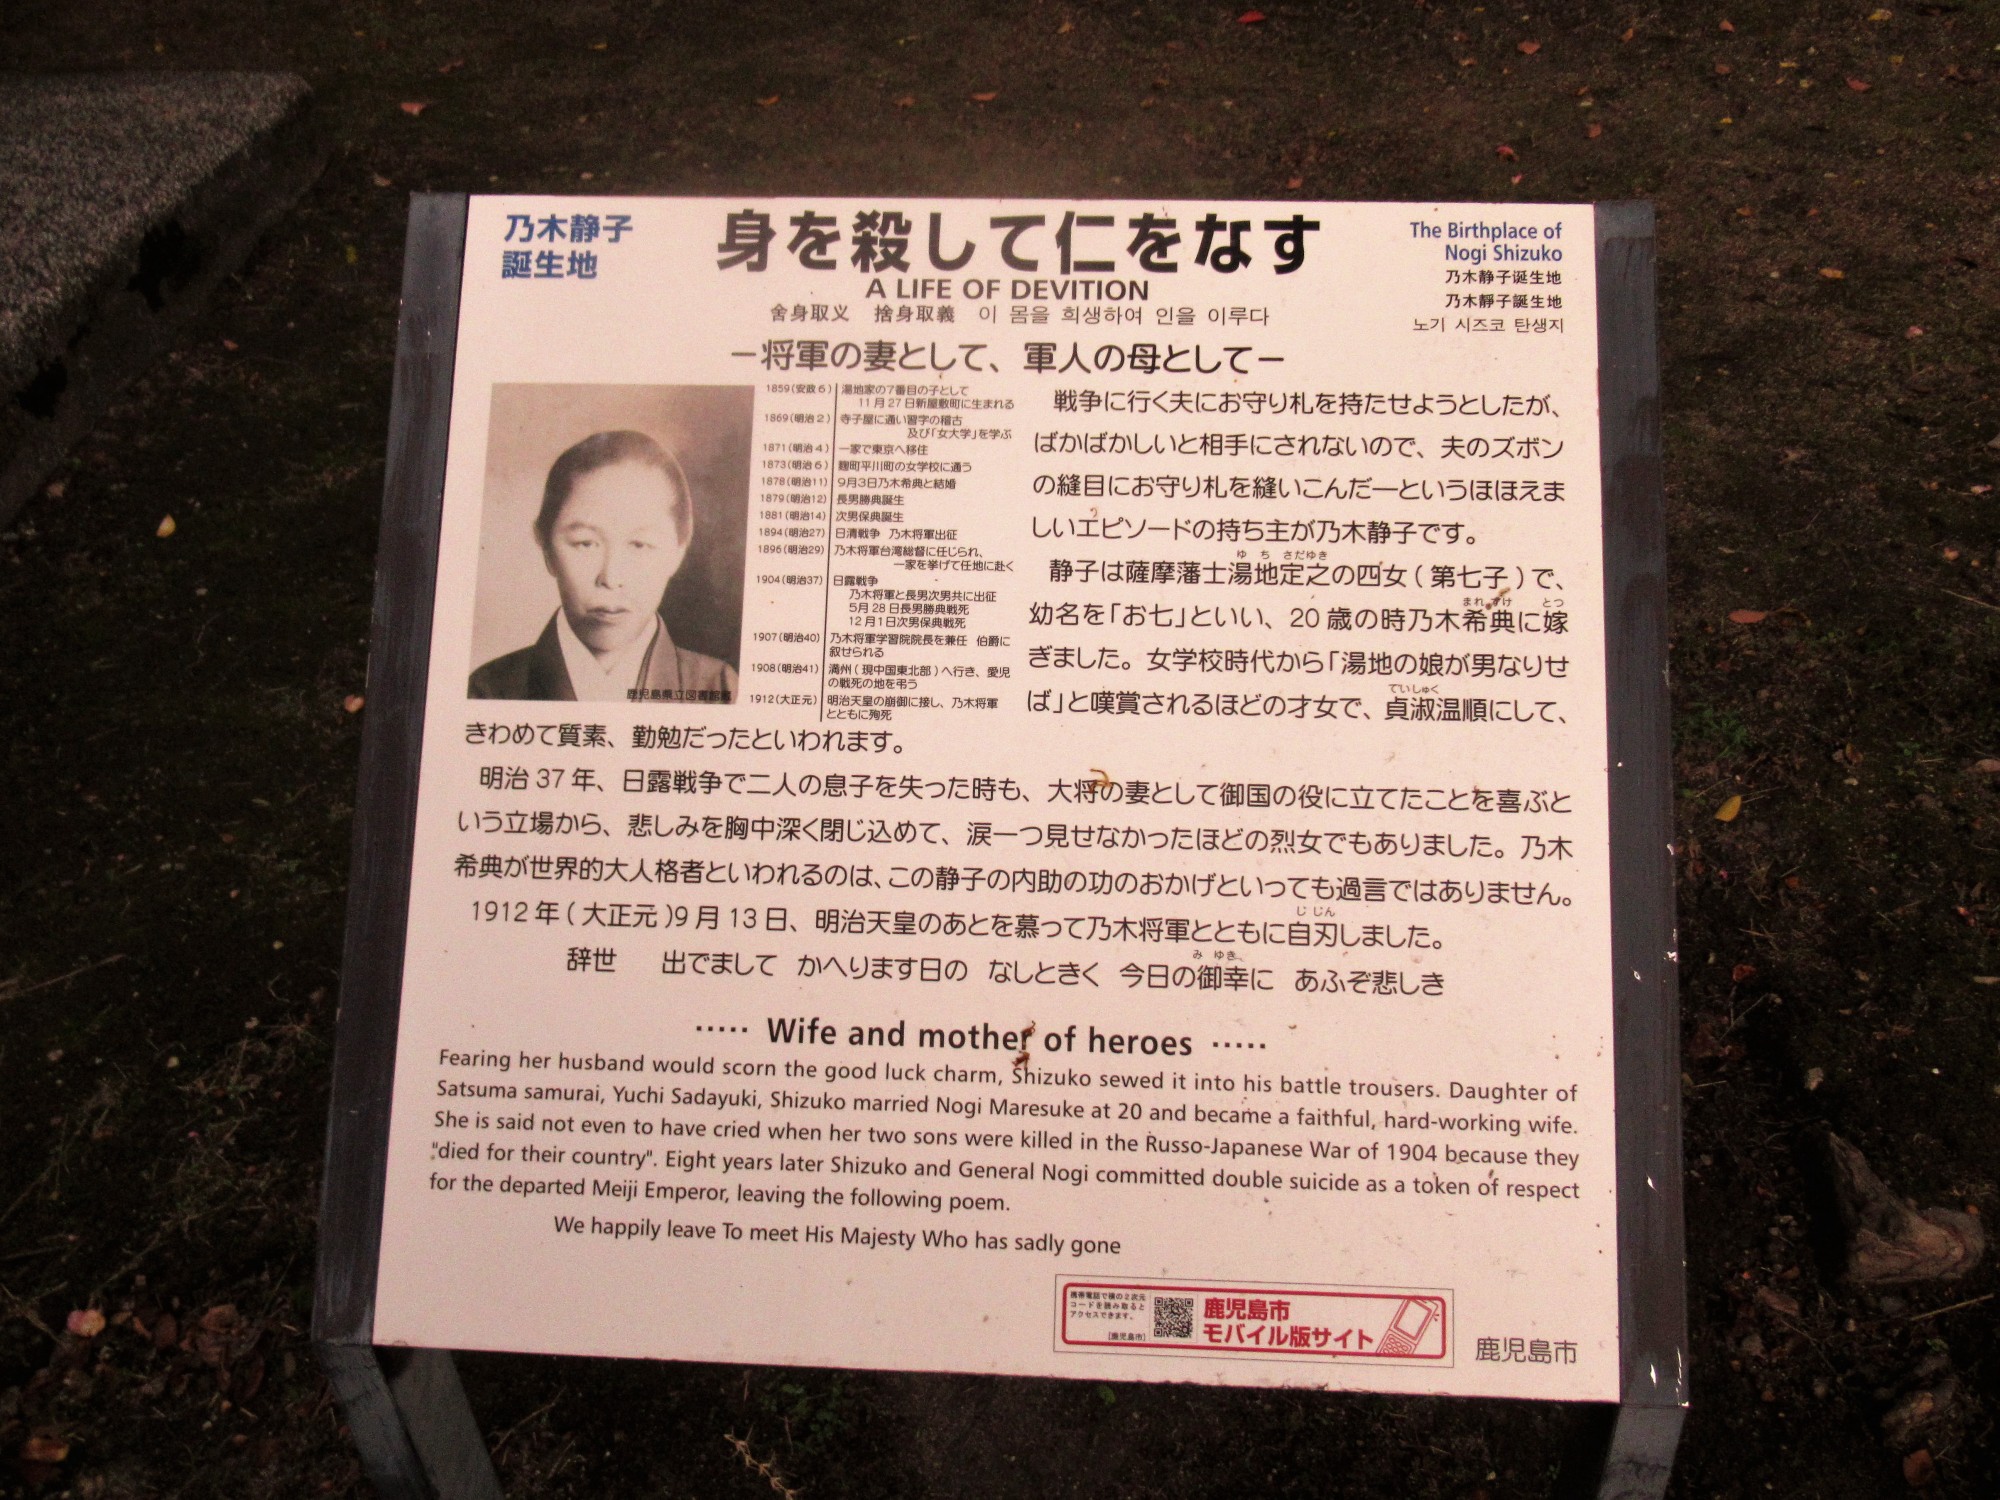 乃木静子
誕生地
身を殺して仁をなす
A LIFE OF DEVITION
舍身取义 捨身取義 이 몸을 희생하여 인을 이루다
The Birthplace of
Nogi Shizuko
乃木静子诞生地
乃木靜子誕生地
노기 시즈코 탄생지
－将軍の妻として、軍人の母として－
鹿児島県立図書館蔵
1859(安政6) 湯地家の7番目の子として
11月27日新屋敷町に生まれる
1869(明治2) 寺子屋に通い習字の稽古
及び「女大学」を学ぶ
1871(明治4) 一家で東京へ移住
1873(明治6) 麹町平川町の女学校に通う
1878(明治11) 9月3日乃木希典と結婚
1879(明治12) 長男勝典誕生
1881(明治14) 次男保典誕生
1894(明治27) 日清戦争 乃木将軍出征
1896(明治29) 乃木将軍台湾総督に任じられ、
一家を挙げて任地に赴く
1904(明治37) 日露戦争
乃木将軍と長男次男共に出征
5月28日長男勝典戦死
12月1日次男保典戦死
1907(明治40) 乃木将軍学習院院長を兼任 伯爵に
叙せられる
1908(明治41) 満州(現中国東北部)へ行き、愛児
の戦死の地を弔う
1912(大正元) 明治天皇の崩御に接し、乃木将軍
とともに殉死
戦争に行く夫にお守り札を持たせようとしたが、
ばかばかしいと相手にされないので、夫のズボン
の縫目にお守り札を縫いこんだ―というほほえま
しいエピソードの持ち主が乃木静子です。
ゆ ち さだゆき
静子は薩摩藩士湯地定之の四女(第七子)で、
まれすけ とつ
幼名を「お七」といい、20歳の時乃木希典に嫁
ぎました。女学校時代から「湯地の娘が男なりせ
ていしゅく
ば」と嘆賞されるほどの才女で、貞淑温順にして、
きわめて質素、勤勉だったといわれます。
明治37年、日露戦争で二人の息子を失った時も、大将の妻として御国の役に立てたことを喜ぶと
いう立場から、悲しみを胸中深く閉じ込めて、涙一つ見せなかったほどの烈女でもありました。乃木
希典が世界的大人格者といわれるのは、この静子の内助の功のおかげといっても過言ではありません。
じじん
1912年(大正元)9月13日、明治天皇のあとを慕って乃木将軍とともに自刃しました。
み ゆき
辞世 出でまして かへります日の なしときく 今日の御幸に あふぞ悲しき
····· Wife and mother of heroes ·····
Fearing her husband would scorn the good luck charm, Shizuko sewed it into his battle trousers. Daughter of
Satsuma samurai, Yuchi Sadayuki, Shizuko married Nogi Maresuke at 20 and became a faithful, hard-working wife.
She is said not even to have cried when her two sons were killed in the Russo-Japanese War of 1904 because they
"died for their country". Eight years later Shizuko and General Nogi committed double suicide as a token of respect
for the departed Meiji Emperor, leaving the following poem.
We happily leave To meet His Majesty Who has sadly gone
携帯電話で横の2次元
コードを読み取ると
アクセスできます。
[鹿児島市]
鹿児島市
モバイル版サイト
鹿児島市